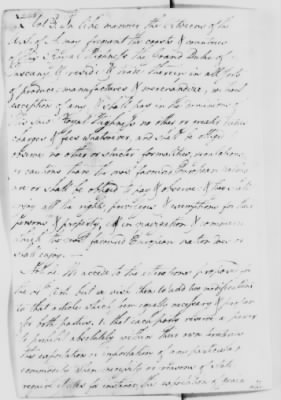 Art. 3. In like manner the Citizens of the
U.S. of A. may frequent the coasts & countries
of His Royal Highness The Grand Duke of
Tuscany & reside & trade therein in all sorts
of produce, manufactures & merchandize, without
exception of any & shall pay in the dominions of
his said Royal Highness no other or greater duties
charges & fees whatsoever, and shall be obliged
observe no other or stricter formalities, regulations
or cautions than the most favored European nations
are or shall be obliged to pay & observe: & they shall
enjoy all the rights, privileges & exemptions for their
persons & property, & in navigation & commerce
which the most favored European nation does or
shall enjoy.
Note. We accede to the alterations proposed in
the art. but we wish them to add two modifications
to that article which seem equally necessary & proper
for both parties. 1. that each party reserve a power
to prohibit absolutely within their own
the exportation or importation of any particular
commodity when necessity or reasons of state
require it: as for instance, the exportation of grain